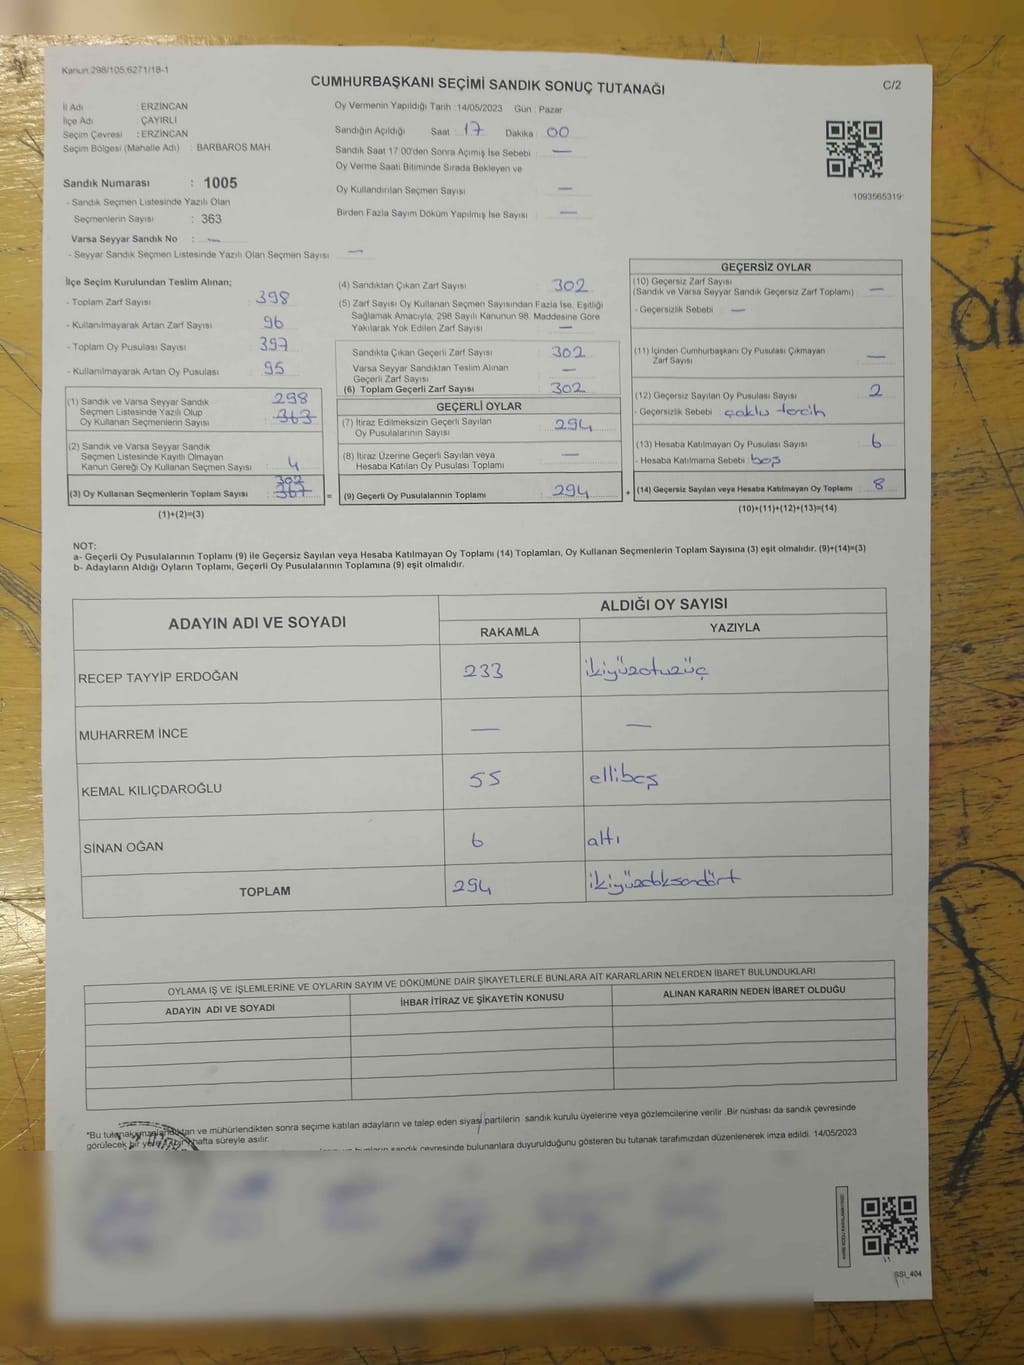 Kanun:298/105;6271/18-1
CUMHURBAŞKANI SEÇİMİ SANDIK SONUÇ TUTANAĞI
C/2
İl Adı : ERZİNCAN
İlçe Adı : ÇAYIRLI
Seçim Çevresi : ERZİNCAN
Seçim Bölgesi (Mahalle Adı) : BARBAROS MAH
Sandık Numarası : 1005
- Sandık Seçmen Listesinde Yazılı Olan
Seçmenlerin Sayısı : 363
Varsa Seyyar Sandık No : —
- Seyyar Sandık Seçmen Listesinde Yazılı Olan Seçmen Sayısı : —
Oy Vermenin Yapıldığı Tarih :14/05/2023 Gün : Pazar
Sandığın Açıldığı Saat : 17 Dakika : 00
Sandık Saat 17:00'den Sonra Açımış İse Sebebi : —
Oy Verme Saati Bitiminde Sırada Bekleyen ve
Oy Kullandırılan Seçmen Sayısı : —
Birden Fazla Sayım Döküm Yapılmış İse Sayısı : —
1093565319
İlçe Seçim Kurulundan Teslim Alınan;
- Toplam Zarf Sayısı : 398
- Kullanılmayarak Artan Zarf Sayısı : 96
- Toplam Oy Pusulası Sayısı : 397
- Kullanılmayarak Artan Oy Pusulası : 95
(1) Sandık ve Varsa Seyyar Sandık
Seçmen Listesinde Yazılı Olup
Oy Kullanan Seçmenlerin Sayısı : 298 363
(2) Sandık ve Varsa Seyyar Sandık
Seçmen Listesinde Kayıtlı Olmayan
Kanun Gereği Oy Kullanan Seçmen Sayısı : 4
(3) Oy Kullanan Seçmenlerin Toplam Sayısı : 302 367 =
(1)+(2)=(3)
(4) Sandıktan Çıkan Zarf Sayısı : 302
(5) Zarf Sayısı Oy Kullanan Seçmen Sayısından Fazla İse, Eşitliği
Sağlamak Amacıyla; 298 Sayılı Kanunun 98. Maddesine Göre
Yakılarak Yok Edilen Zarf Sayısı : —
Sandıkta Çıkan Geçerli Zarf Sayısı : 302
Varsa Seyyar Sandıktan Teslim Alınan
Geçerli Zarf Sayısı : —
(6) Toplam Geçerli Zarf Sayısı : 302
GEÇERLİ OYLAR
(7) İtiraz Edilmeksizin Geçerli Sayılan
Oy Pusulalarının Sayısı : 294
(8) İtiraz Üzerine Geçerli Sayılan veya
Hesaba Katılan Oy Pusulası Toplamı : —
(9) Geçerli Oy Pusulalarının Toplamı : 294 +
GEÇERSİZ OYLAR
(10) Geçersiz Zarf Sayısı
(Sandık ve Varsa Seyyar Sandık Geçersiz Zarf Toplamı) : —
- Geçersizlik Sebebi : —
(11) İçinden Cumhurbaşkanı Oy Pusulası Çıkmayan
Zarf Sayısı : —
(12) Geçersiz Sayılan Oy Pusulası Sayısı : 2
- Geçersizlik Sebebi : çoklu tercih
(13) Hesaba Katılmayan Oy Pusulası Sayısı : 6
- Hesaba Katılmama Sebebi : boş
(14) Geçersiz Sayılan veya Hesaba Katılmayan Oy Toplamı : 8
(10)+(11)+(12)+(13)=(14)
NOT:
a- Geçerli Oy Pusulalarının Toplamı (9) ile Geçersiz Sayılan veya Hesaba Katılmayan Oy Toplamı (14) Toplamları, Oy Kullanan Seçmenlerin Toplam Sayısına (3) eşit olmalıdır. (9)+(14)=(3)
b- Adayların Aldığı Oyların Toplamı, Geçerli Oy Pusulalarının Toplamına (9) eşit olmalıdır.
ADAYIN ADI VE SOYADI
ALDIĞI OY SAYISI
RAKAMLA YAZIYLA
RECEP TAYYİP ERDOĞAN 233 ikiyüzotuzüç
MUHARREM İNCE — —
KEMAL KILIÇDAROĞLU 55 ellibeş
SİNAN OĞAN 6 altı
TOPLAM 294 ikiyüzdoksandört
OYLAMA İŞ VE İŞLEMLERİNE VE OYLARIN SAYIM VE DÖKÜMÜNE DAİR ŞİKAYETLERLE BUNLARA AİT KARARLARIN NELERDEN İBARET BULUNDUKLARI
ADAYIN ADI VE SOYADI İHBAR İTİRAZ VE ŞİKAYETİN KONUSU ALINAN KARARIN NEDEN İBARET OLDUĞU
*Bu tutanak ve mühürlendikten sonra seçime katılan adayların ve talep eden siyasi partilerin sandık kurulu üyelerine veya gözlemcilerine verilir .Bir nüshası da sandık çevresinde
görülecek bir yere bir hafta süreyle asılır.
sandık çevresinde bulunanlara duyurulduğunu gösteren bu tutanak tarafımızdan düzenlenerek imza edildi. 14/05/2023
SSI_404